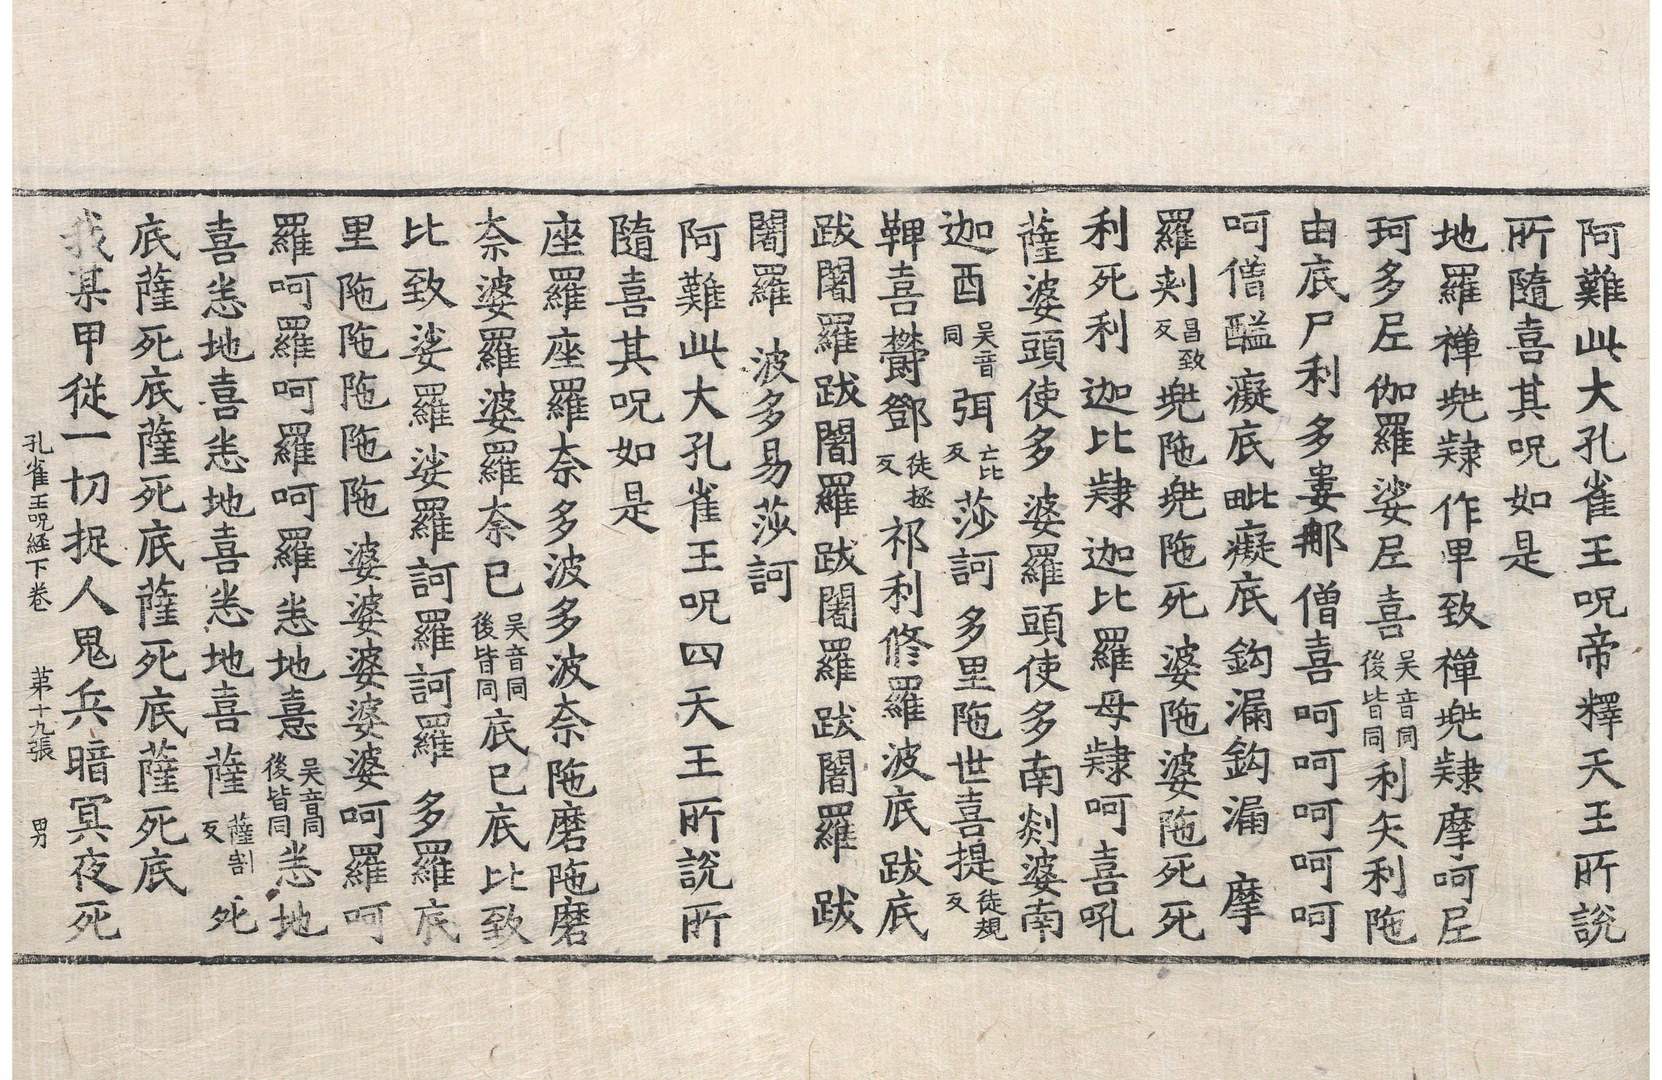 阿難此大孔雀王呪帝釋天王所說
所隨喜其呪如是
地羅禪兠隸作甲致禪兠隸摩呵𡰱
珂多𡰱伽羅娑𡰱喜吳音同後皆同利矢利陁
由底尸利多婁𨙻僧喜呵呵呵呵呵
呵僧醯癡底毗癡底鈎漏鈎漏摩
羅刾昌致反兠陁兠陁死婆陁婆陁死死
利死利迦比隸迦比羅母隸呵喜吼
薩婆頭使多婆羅頭使多南剡婆南
迦酉吳音同弭亡比反莎訶多里陁世喜提徒規反
鞞喜欝鄧徒拯反祁利修羅波底跋底
跋闍羅跋闍羅跋闍羅跋闍羅跋
闍羅波多易莎訶
阿難此大孔雀王呪四天王所說所
隨喜其呪如是
座羅座羅柰多波多波柰陁磨陁磨
柰婆羅婆羅柰已吳音同後皆同底已底比致
比致娑羅娑羅訶羅訶羅多羅底
里陁陁陁陁陁婆婆婆婆婆呵羅呵
羅呵羅呵羅呵羅恙地憙吳音同後皆同恙地
喜恙地喜恙地喜恙地喜薩薩割反死
底薩死底薩死底薩死底薩死底
我某甲従一切捉人鬼兵暗冥夜死
孔雀王呪経下卷 第十九張 男